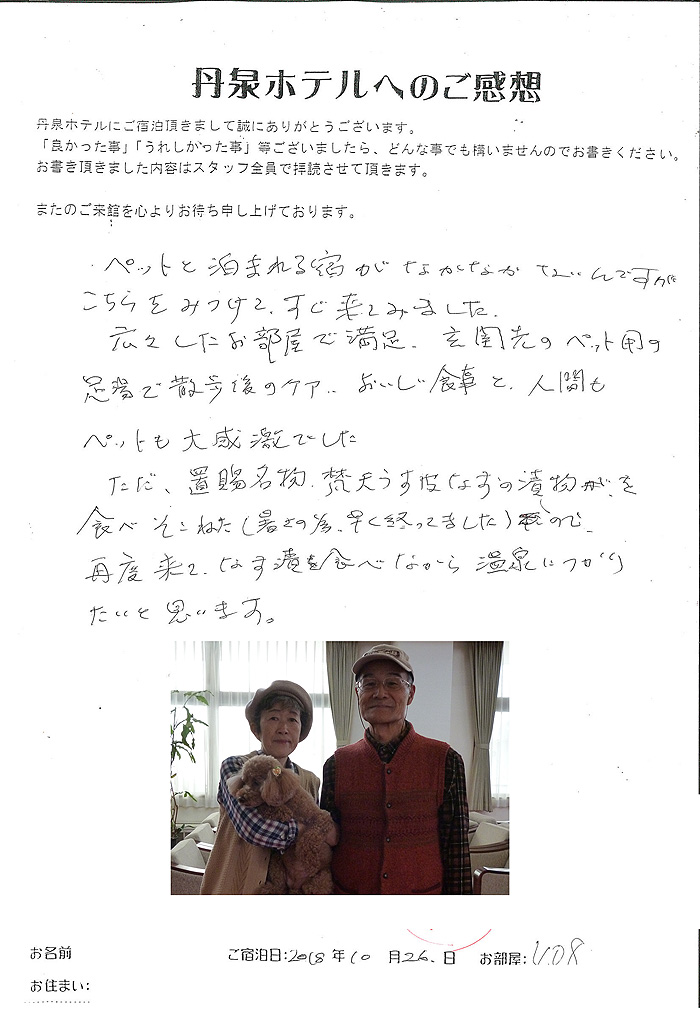 丹泉ホテルへのご感想
丹泉ホテルにご宿泊頂きまして誠にありがとうございます。
「良かった事」「うれしかった事」等ございましたら、どんな事でも構いませんのでお書きください。
お書き頂きました内容はスタッフ全員で拝読させて頂きます。
またのご来館を心よりお待ち申し上げております。
ペットと泊まれる宿がなかなかないんですが
こちらをみつけて、すぐ来てみました。
広々したお部屋で満足、玄関先のペット用の
足湯で散歩後のケア、おいしい食事と、人間も
ペットも大感激でした
ただ、置賜名物、梵天うす皮なすの漬物を
食べそこねた(暑さの為、早く終ってました)ので、
再度来て、なす漬を食べながら温泉につかり
たいと思います。
お名前 ご宿泊日:2018年10月26、日 お部屋:
お住まい: